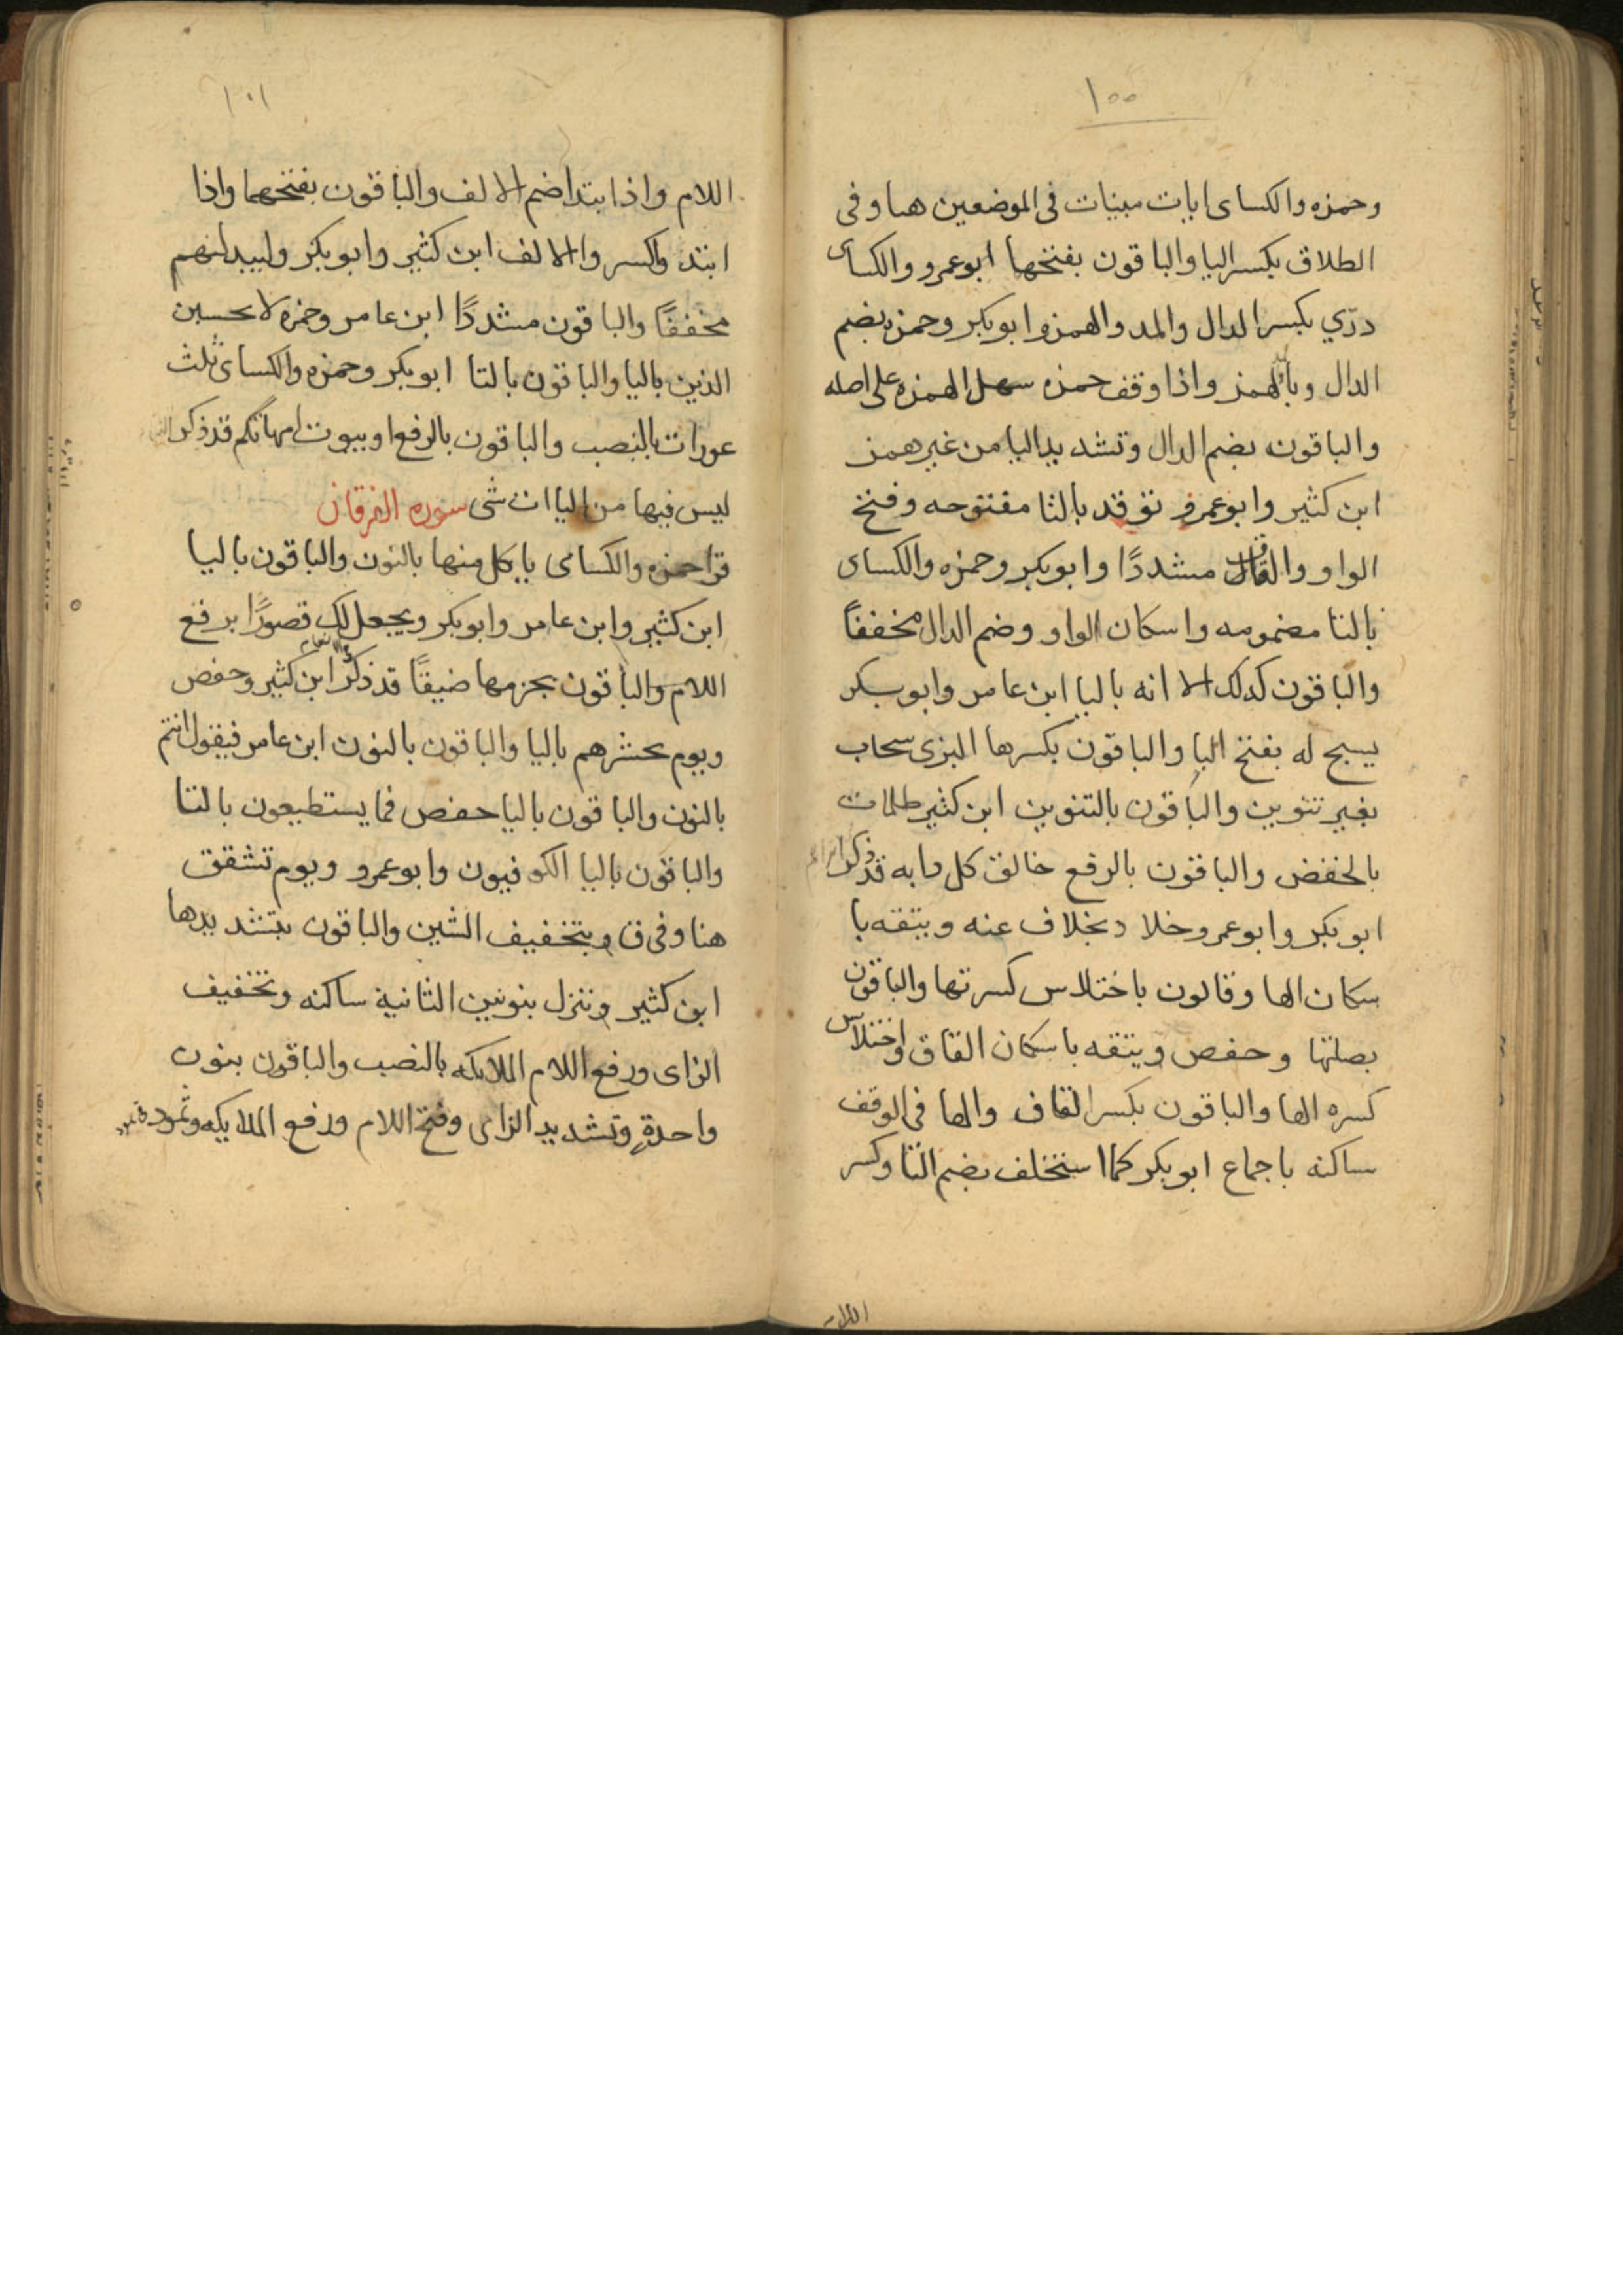 ١٠٠
وحمزه والكساى ايات مبينات فى الموضعين هنا وفى
الطلاق بكسر اليا والباقون بفتحها ابو عمرو والكساى
درّي بكسر الدال والمد والهمز وابو بكر وحمزه بضم
الدال وبالهمز واذا وقف حمزه سهل الهمزه على اصله
والباقون بضم الدال وتشديد اليا من غير همز
ابن كثير وابو عمرو توقد بالتا مفتوحه وفتح
الواو والقاف مشددًا وابو بكر وحمزه والكساى
بالتا مضمومه واسكان الواو وضم الدال مخففًا
والباقون كدلك الا انه باليا ابن عامر وابو بكر
يسبح له بفتح البا والباقون بكسرها البزى سحاب
بغير تنوين والباقون بالتنوين ابن كثير ظلمات
بالخفض والباقون بالرفع خالق كل دابه قد ذكر
ابو بكر وابو عمرو وخلا د بخلاف عنه ويتقه با
سكان الها وقالون باختلاس كسرتها والباقون
بصلتها وحفص ويتقه باسكان القاف واختلاس
كسره الها والباقون بكسر القاف والها فى الوقف
ساكنه باجماع ابو بكر كما استخلف بضم التا وكسر
اللام
١٠١
اللام واذا ابتدا ضم الالف والباقون بفتحهما واذا
ابتدوا كسروا الالف ابن كثير وابو بكر وليبدلنهم
مخففًا والباقون مشددًا ابن عامر وحمزه لا يحسبن
الذين باليا والباقون بالتا ابو بكر وحمزه والكساى ثلث
عورات بالنصب والباقون بالرفع او بيوت امهاتكم قد ذكر
ليس فيها من اليا ات شى سوره الفرقان
قرا حمزه والكساى ياكل منها بالنون والباقون باليا
ابن كثير وابن عامر وابو بكر ويجعل لك قصورًا برفع
اللام والباقون بجزمها ضيقًا قد ذكر ابن كثير وحفص
ويوم يحشرهم باليا والباقون بالنون ابن عامر فيقول انتم
بالنون والباقون باليا حفص فما يستطيعون بالتا
والباقون باليا الكوفيون وابو عمرو ويوم تشقق
هنا وفى ق بتخفيف الشين والباقون بتشديدها
ابن كثير وننزل بنونين الثانية ساكنه وتخفيف
الزاى ورفع اللام الملايكه بالنصب والباقون بنون
واحدةٍ وتشديد الزاى وفتح اللام ورفع الملايكه وثمود